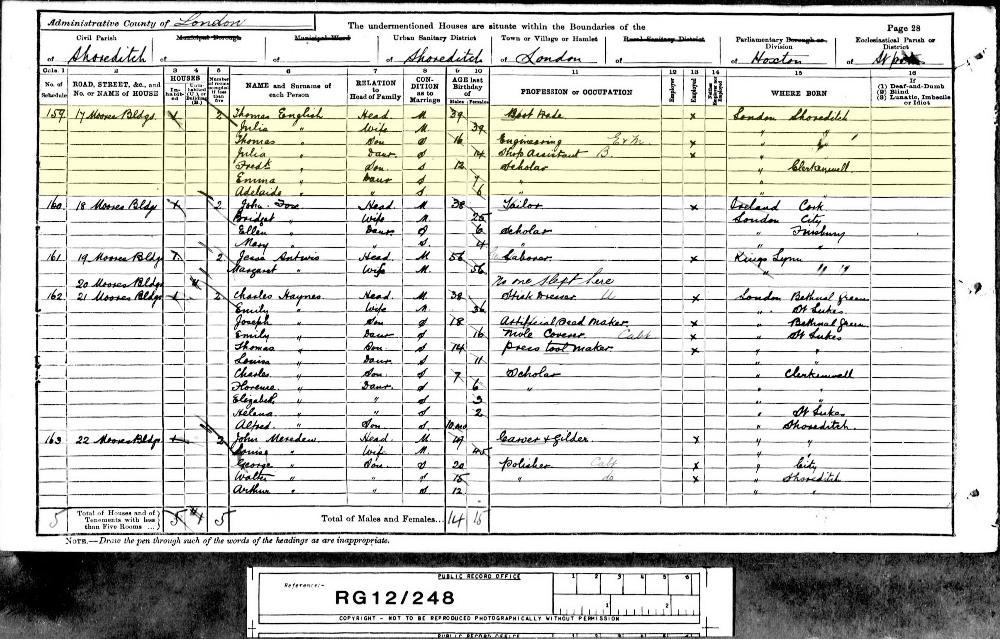 Administrative County of London
The undermentioned Houses are situate within the Boundaries of the
Page 28
Civil Parish of Shoreditch
Municipal Borough of
Municipal Ward of
Urban Sanitary District of Shoreditch
Town or Village or Hamlet of London
Rural Sanitary District of
Parliamentary Borough or Division of Hoxton
Ecclesiastical Parish or District of
Cols. 1 2 3 4 5 6 7 8 9 10 11 12 13 14 15 16
No. of Schedule
ROAD, STREET, &c., and No. or NAME of HOUSE
HOUSES
NAME and Surname of each Person
RELATION to Head of Family
CONDITION as to Marriage
AGE last Birthday of
Males Females
PROFESSION or OCCUPATION
Employer
Employed
WHERE BORN
(1) Deaf-and-Dumb
(2) Blind
(3) Lunatic, Imbecile or Idiot
159 17 Moores Bldgs 1 2 Thomas English Head M 39 x London Shoreditch
Julia " Wife M 39 " "
Thomas " Son S 16 Engineering x " "
Julia " Daur S 14 Shop Assistant x "
Fredk " Son S 12 Scholar " Clerkenwell
Emma " Daur S 9 " "
Adelaide " " S 6 " "
160 18 Moores Bldgs 1 2 John Fox Head M 38 Tailor x Ireland Cork
Bridget " Wife M 25 London City
Ellen " Daur S 6 Scholar " Finsbury
Mary " " S 4 " " "
161 19 Moores Bldgs 1 2 Jesse Antwis Head M 56 Laborer x Kings Lynn
Margaret " Wife M 56 " " "
20 Moores Bldgs No one slept here
162 21 Moores Bldgs 1 2 Charles Haynes Head M 38 Stick Dresser x London Bethnal green
Emily " Wife M 36 " St Lukes
Joseph " Son S 18 Artificial Bead Maker x " Bethnal Green
Emily " Daur S 16 Coverer x " St Lukes
Thomas " Son S 14 Press tool maker x " "
Louisa " Daur S 11 " "
Charles " Son S 7 Scholar " Clerkenwell
Florence " Daur S 6 " "
Elizabeth " " S 3 " "
Helena " " S 2 " St Lukes
Alfred " Son S 10 mo " Shoreditch
163 22 Moores Bldgs 1 2 John Head M 49 Carver & Gilder x " "
Louisa " Wife M 45 " "
George " Son S 20 Polisher x " City
Walter " " S 15 " do x " Shoreditch
Arthur " " S 12 " "
5 Total of Houses and of Tenements with less than Five Rooms ... 5 4 5 Total of Males and Females... 14 15
NOTE.—Draw the pen through such of the words of the headings as are inappropriate.
PUBLIC RECORD OFFICE
1 2 3 4 5 6
Reference:-
RG12/248
1 2
COPYRIGHT - NOT TO BE REPRODUCED PHOTOGRAPHICALLY WITHOUT PERMISSION
PUBLIC RECORD OFFICE